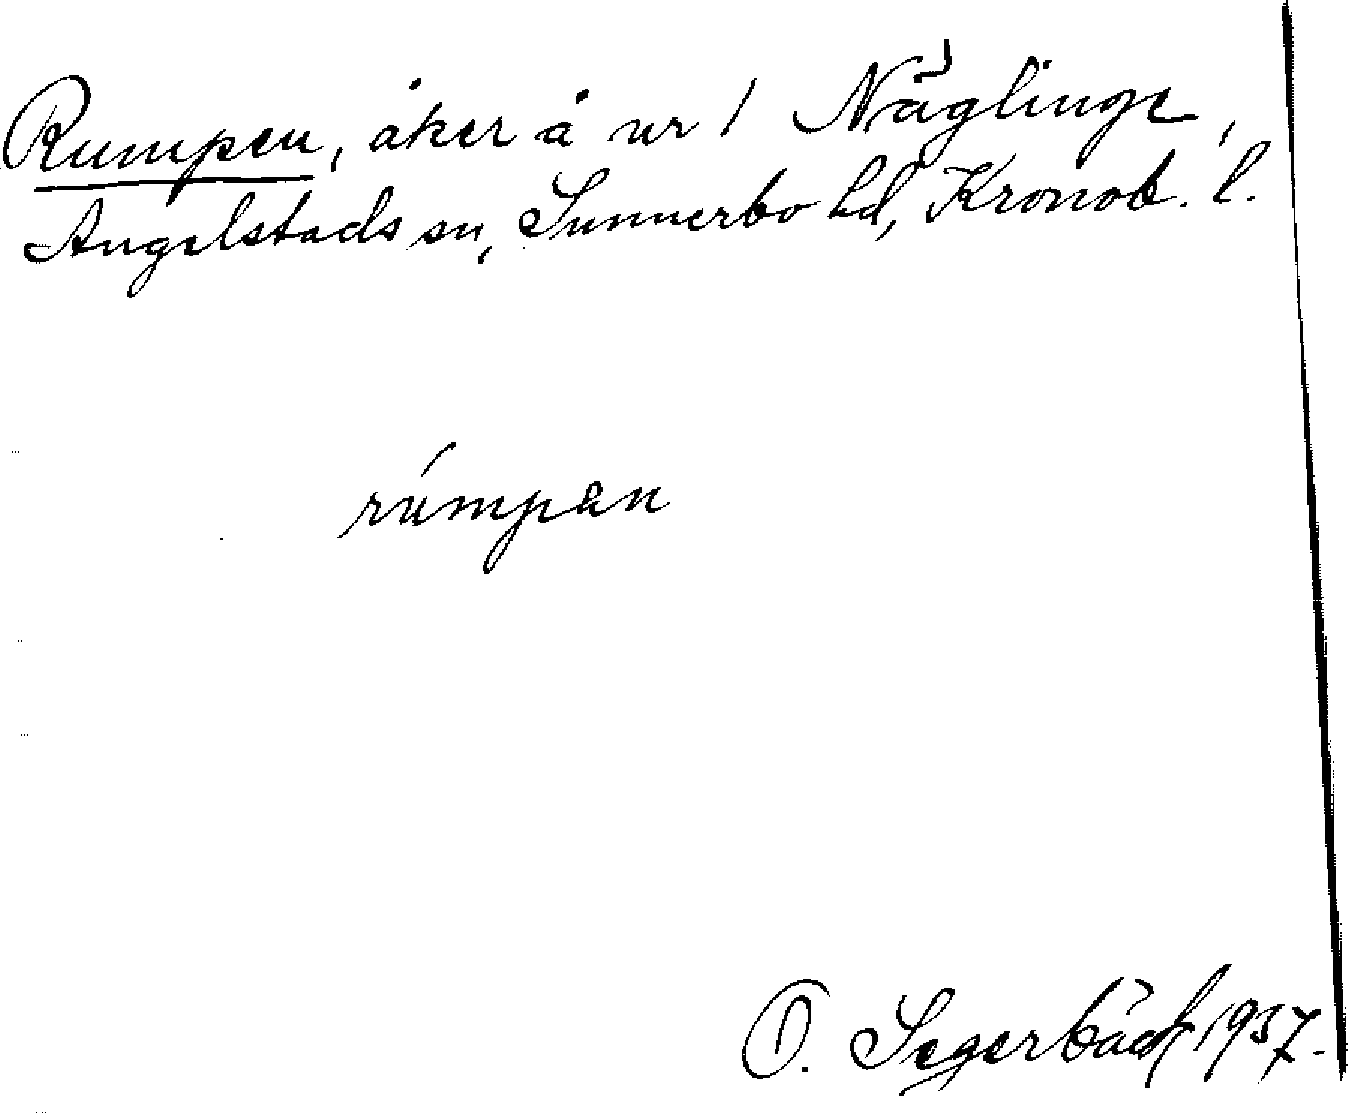 Rumpen, åker å nr 1 Näglinge,
Angelstads sn, Sunnerbo hd, Kronob. l.
rúmpen
O. Segerbäck 1937.